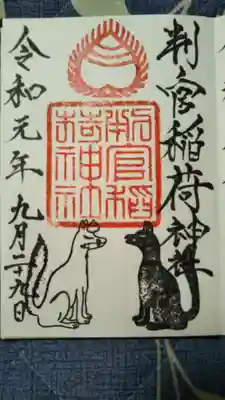 判官稲荷神社
判官稲
荷神社
令和元年九月二十九日